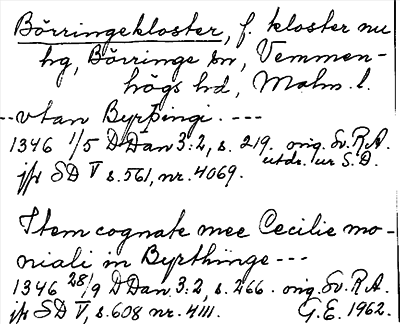 Börringekloster, f. kloster nu
hg, Börringe sn, Vemmen-
högs hd, Malm. l.
--vtan Byrþingi. ---
1346 1/5 DDan 3:2, s. 219. orig. Sv. R.A.
utdr. ur S.D.
jfr SD V s. 561, nr. 4069.
Item cognate mee Cecilie mo-
niali in Byrthinge ---
1346 28/9 DDan. 3:2, s. 266. orig. Sv. R.A.
jfr SD V, s. 608 nr. 4111. G.E. 1962.